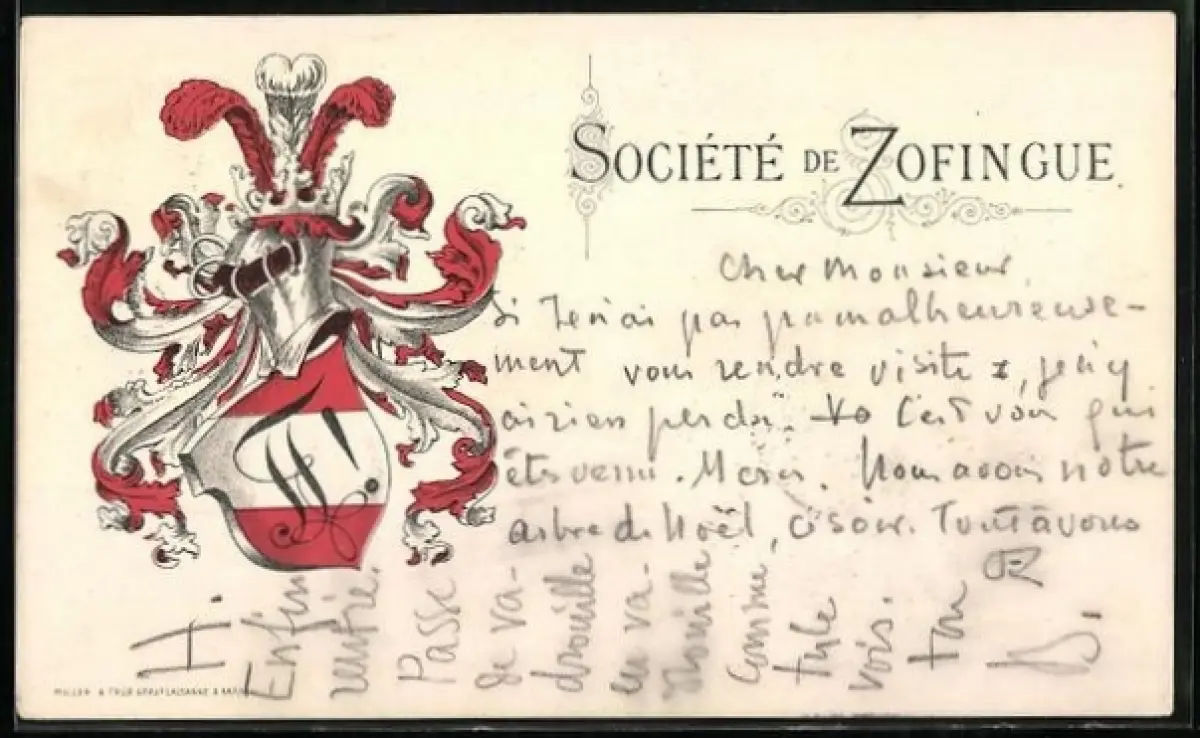 SOCIÉTÉ DE ZOFINGUE
Cher Monsieur,
Si je n'ai pas pu malheureuse-
ment vous rendre visite, je n'y
ai rien perdu. c'est vous qui
êtes venu. Merci. Nous avons notre
arbre de Noël, ce soir. Tout à vous
H.
Enfin
rentré.
Passe
de va-
drouille
en va-
drouille
comme,
tu le
vois.
ton
B.